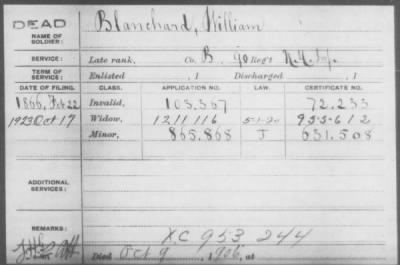 DEAD
NAME OF SOLDIER: Blanchard, William
SERVICE: Late rank, Co. B, 90 Reg't N.Y. Inf.
TERM OF SERVICE: Enlisted , 1 Discharged , 1
DATE OF FILING. CLASS. APPLICATION NO. LAW. CERTIFICATE NO.
1866, Feb 22 Invalid, 103.367 72.233
1923 Oct 17 Widow, 1211116 5-1-20 953612
Minor, 865.868 J 631.508
ADDITIONAL SERVICES:
REMARKS: XC 953 244
Died Oct 9, 1906, at